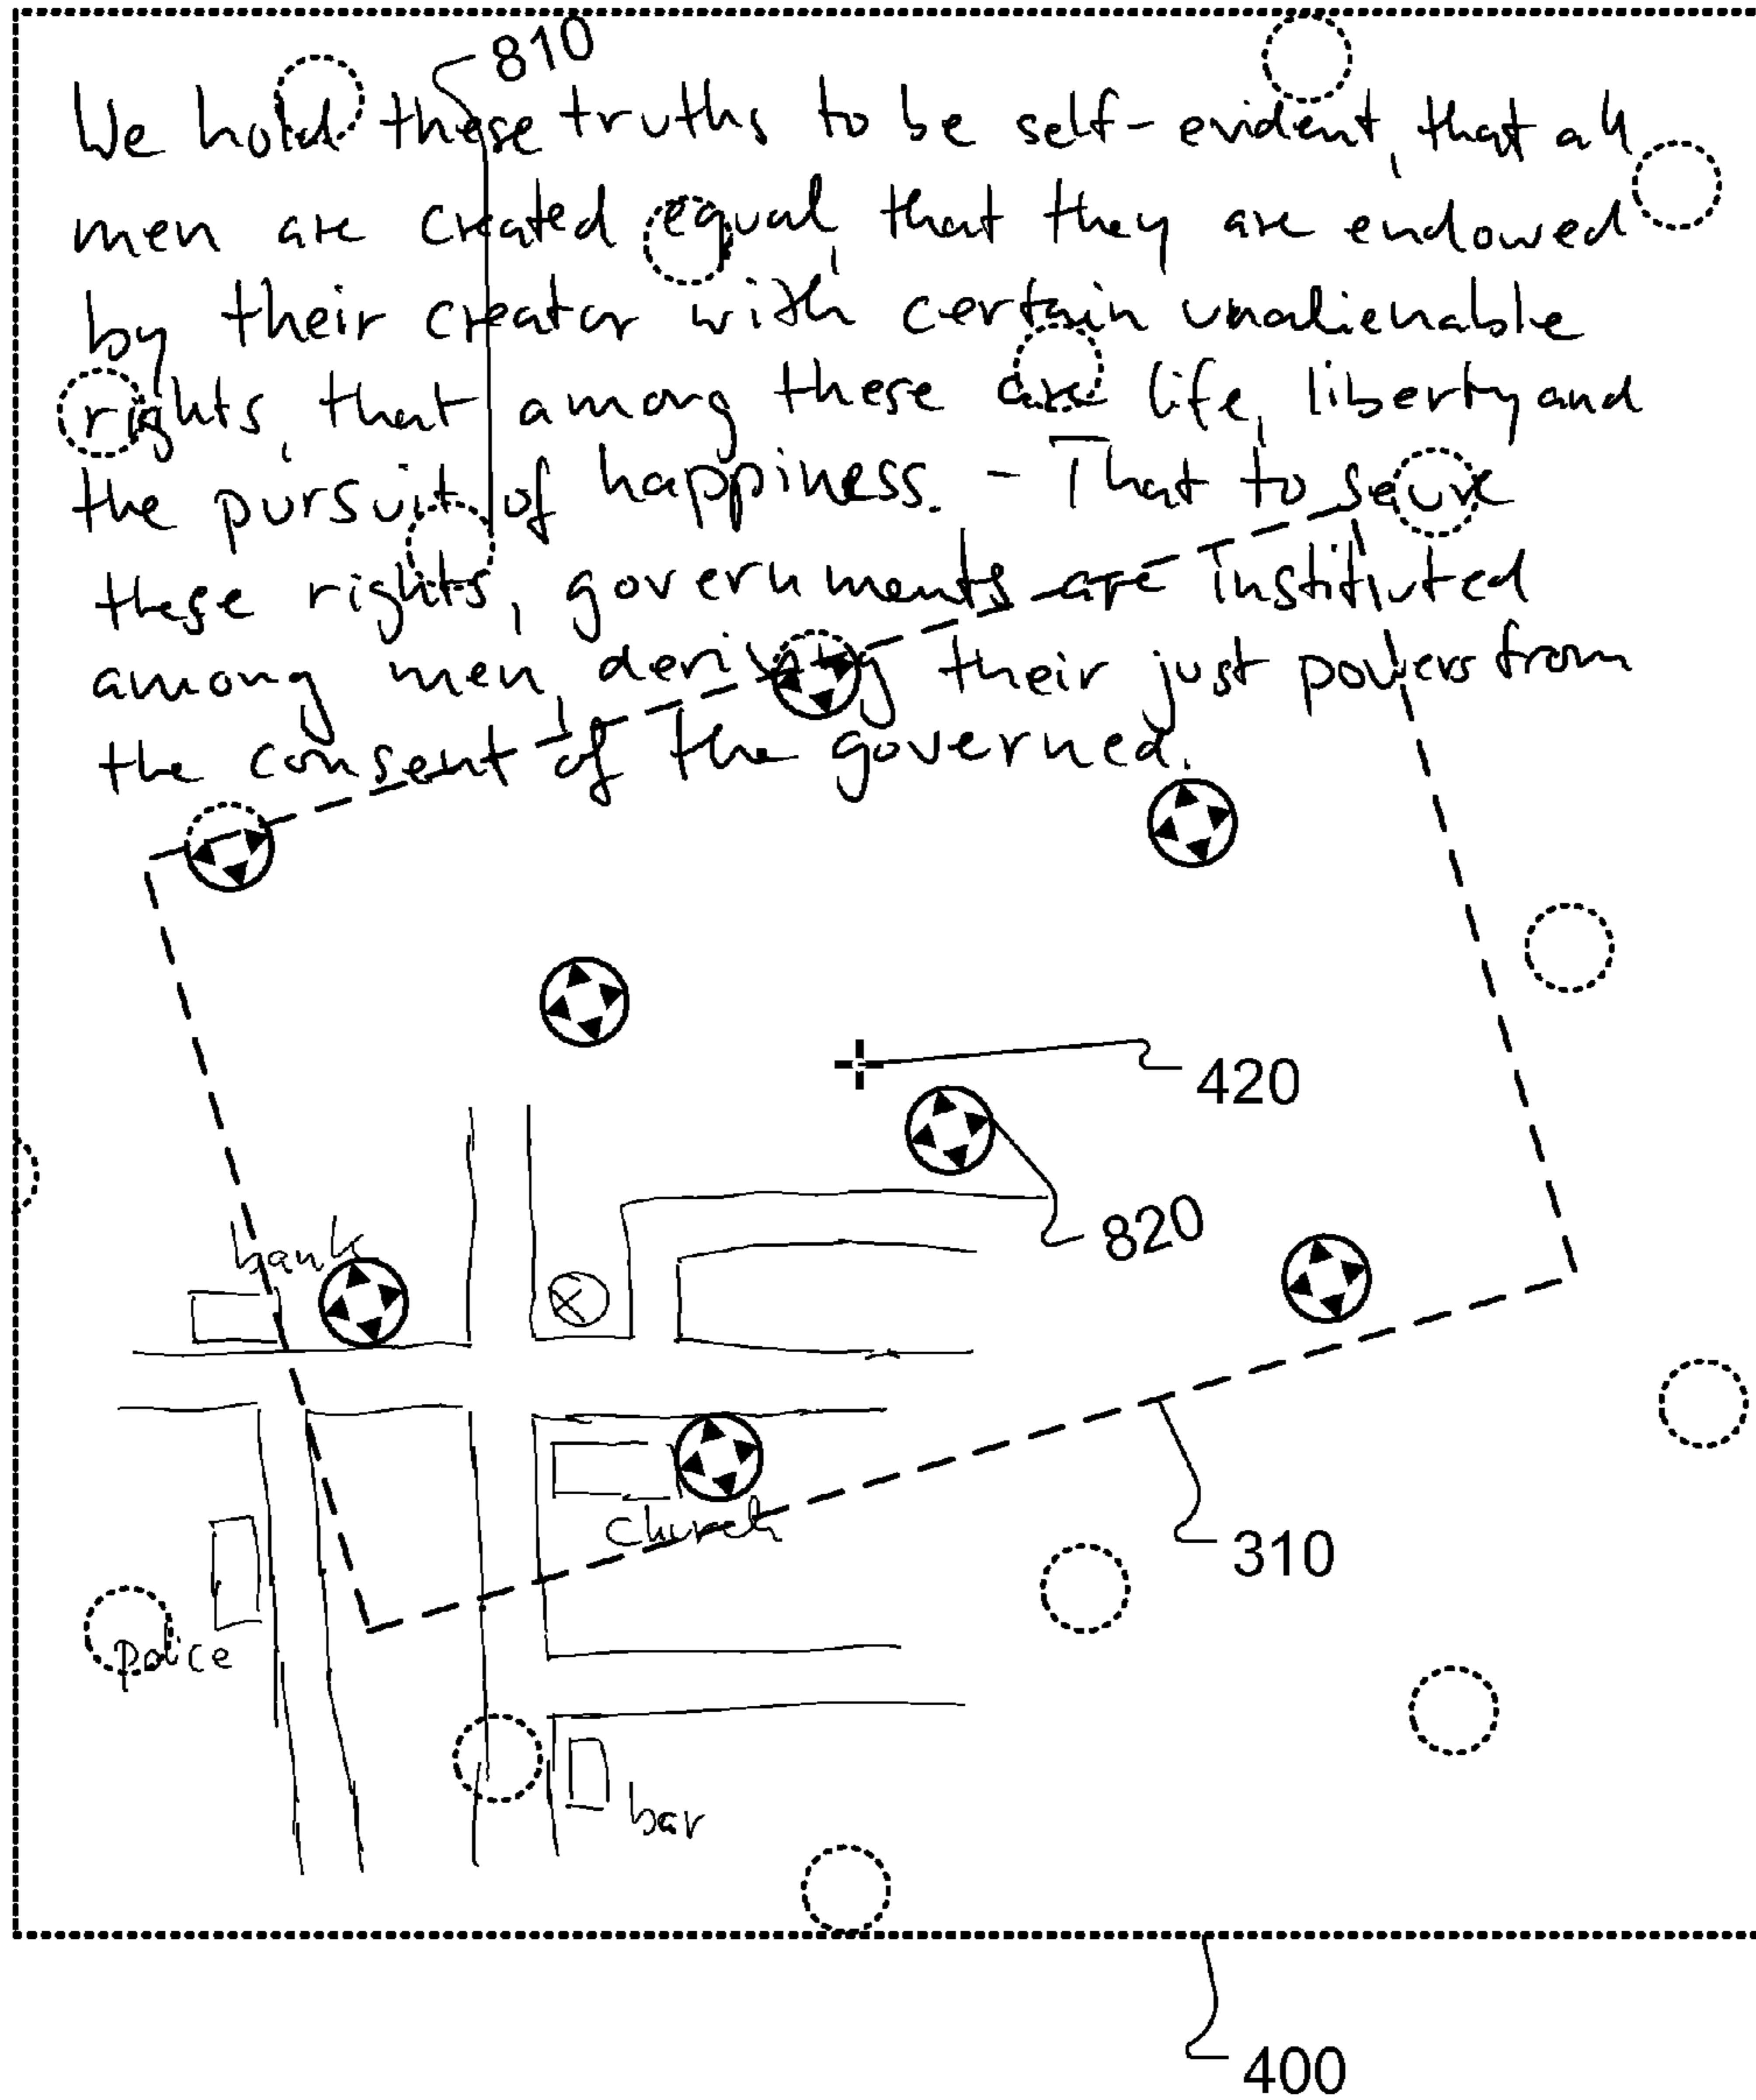 810
We hold these truths to be self-evident, that all
men are created equal, that they are endowed
by their creator with certain unalienable
rights, that among these are life, liberty and
the pursuit of happiness. - That to secure
these rights, governments are instituted
among men, deriving their just powers from
the consent of the governed.
420
820
bank
X
310
church
police
bar
400